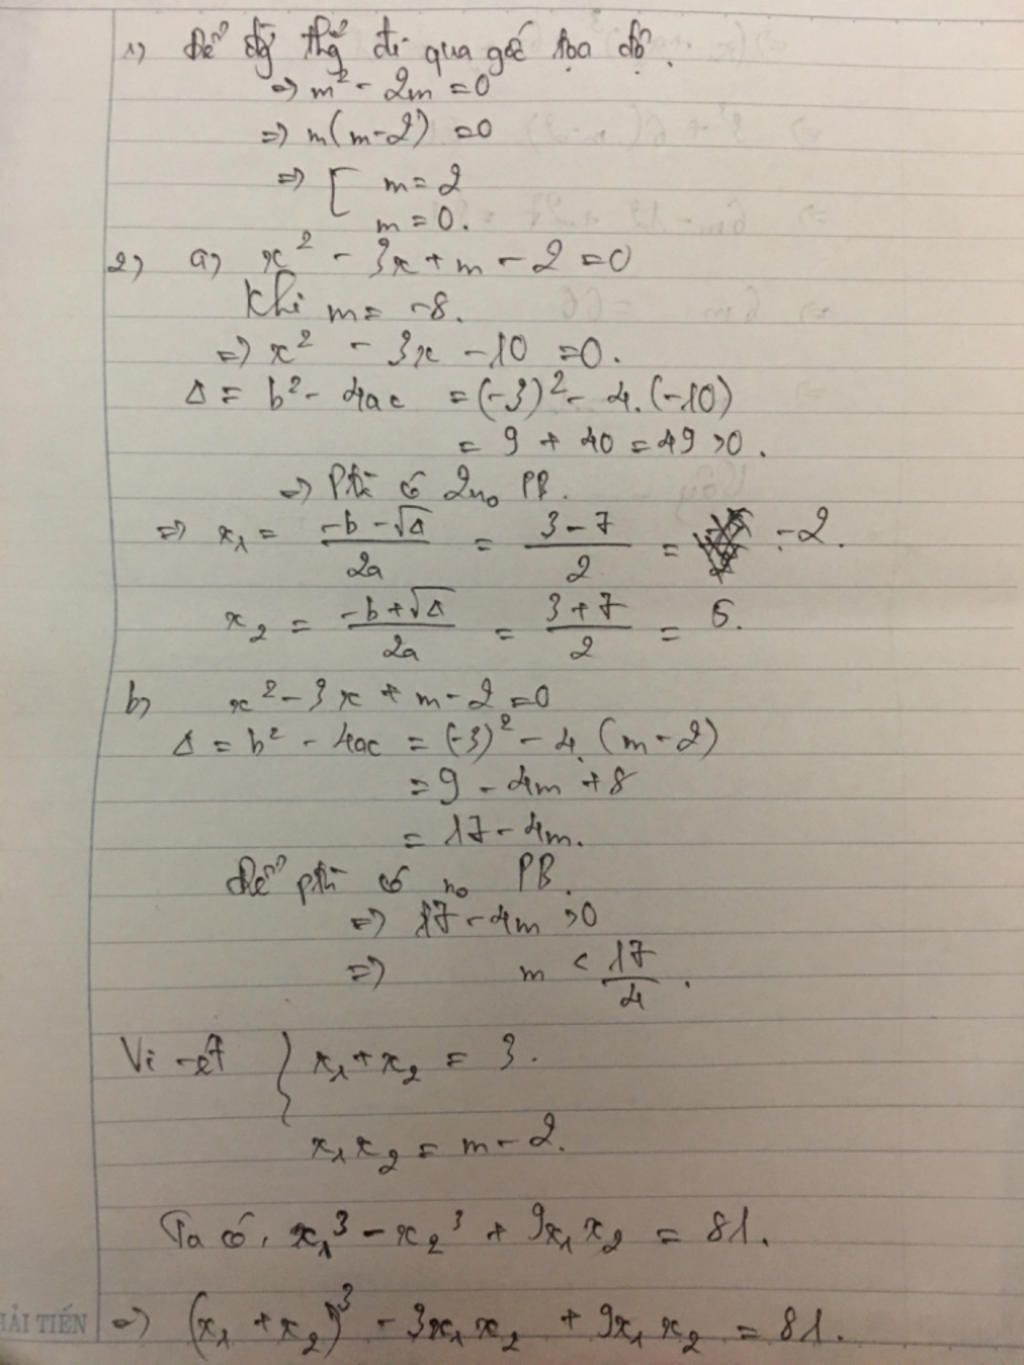 1) Để đg̃ thg̃ đi qua gốc tọa độ.
=> m² - 2m = 0
=> m(m-2) = 0
=> [ m = 2
m = 0.
2) a) x² - 3x + m - 2 = 0
Khi m = -8.
=> x² - 3x - 10 = 0.
Δ = b² - 4ac = (-3)² - 4.(-10)
= 9 + 40 = 49 > 0.
=> Pt có 2no PB.
=> x₁ = (-b - √Δ)/2a = (3 - 7)/2 = -2.
x₂ = (-b + √Δ)/2a = (3 + 7)/2 = 5.
b) x² - 3x + m - 2 = 0
Δ = b² - 4ac = (-3)² - 4. (m - 2)
= 9 - 4m + 8
= 17 - 4m.
Để pt có no PB.
=> 17 - 4m > 0
=> m < 17/4.
Vi-ét { x₁ + x₂ = 3.
x₁x₂ = m - 2.
Ta có, x₁³ - x₂³ + 9x₁x₂ = 81.
=> (x₁ + x₂)³ - 3x₁x₂ + 9x₁x₂ = 81.
HẢI TIẾN